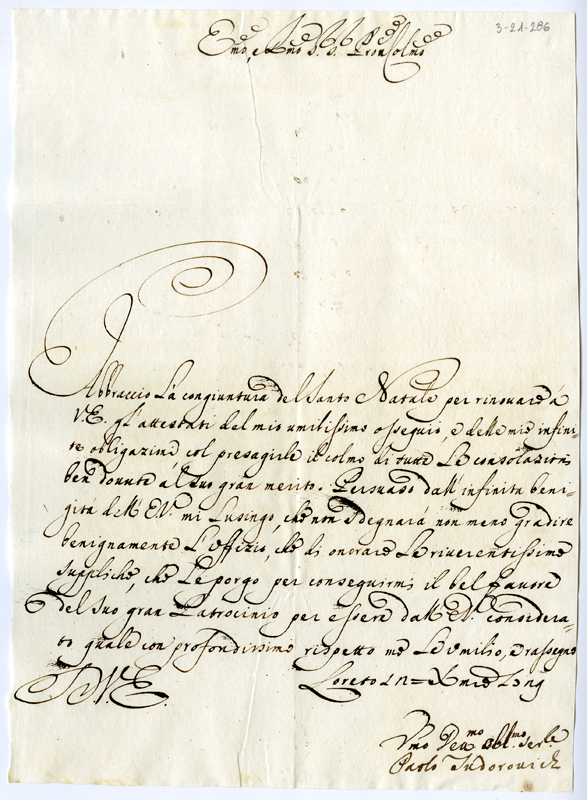 3-21-286
Emo, e Rmo S. S. Pron Colmo
Abbraccio La congiuntura del Santo Natale per rinouare à
V.E. gl'attestati del mio umilissimo osseguio, e delle mie infini-
te obligazini col presagirle il colmo di tutte Le consolazioni
ben douute al suo gran merito. Persuaso dall'infinita beni-
gità dell'E.V. mi Lusingo, che non sdegnarà non meno gradire
benignamente L'offizio, che di onorare Le riuerentissime
suppliche, che Le porgo per conseguirmi il bel fauore
del suo gran Patrocinio per essere dall'E.V. considera-
to quale con profondissimo rispetto me Le umilio, e rassegno
D V.E. Loreto Xmre
Vmo Deu.mo obl.mo ser.le
Paolo Tudorovich